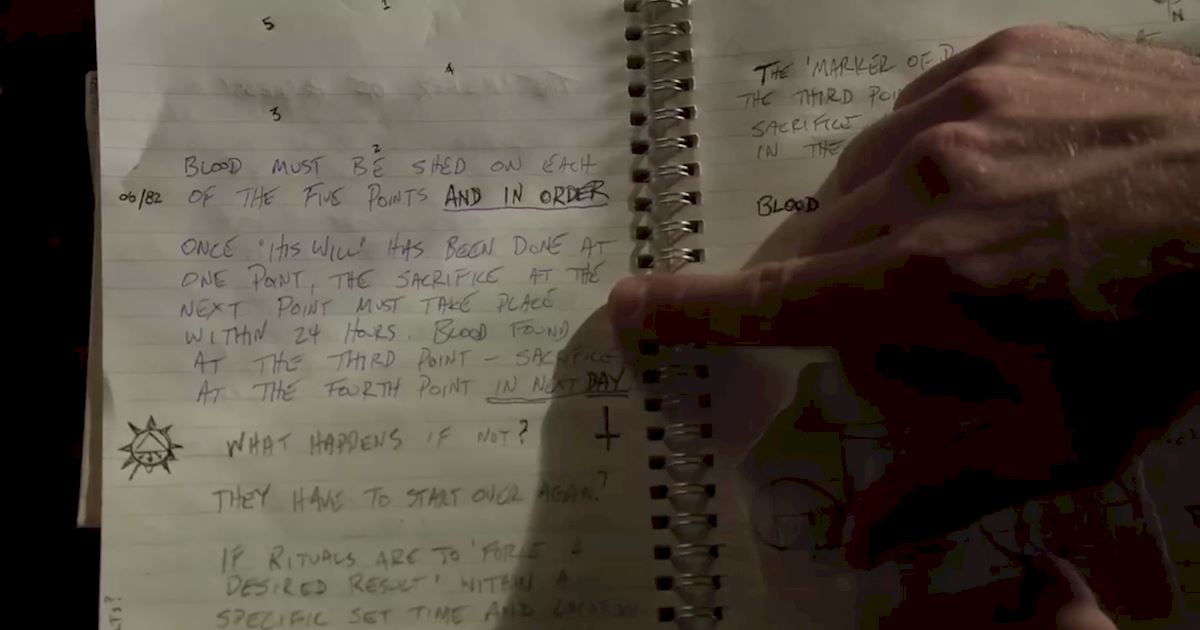 1
5
4
3
2
BLOOD MUST BE SHED ON EACH
06/82 OF THE FIVE POINTS AND IN ORDER
ONCE 'HIS WILL' HAS BEEN DONE AT
ONE POINT, THE SACRIFICE AT THE
NEXT POINT MUST TAKE PLACE
WITHIN 24 HOURS. BLOOD FOUND
AT THE THIRD POINT - SACRIFICE
AT THE FOURTH POINT IN NEXT DAY
WHAT HAPPENS IF NOT?
THEY HAVE TO START OVER AGAIN?
IF RITUALS ARE TO 'FORCE A
DESIRED RESULT' WITHIN A
SPECIFIC SET TIME AND LOCATION
N
THE 'MARKER OF
THE THIRD
SACRIFICE
IN THE
BLOOD